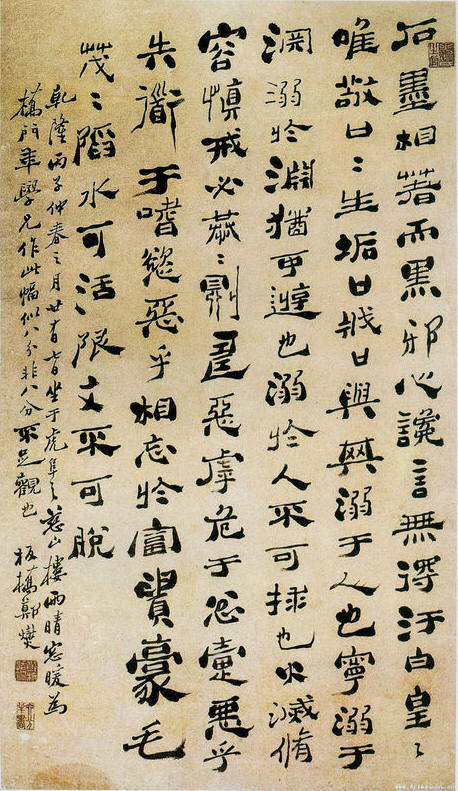 石墨相著而黑邪心讒言無得汙白皇〻
唯敬口〻生垢口戕口與其溺于人也寧溺于
淵溺於淵猶可遊也溺於人不可捄也火滅脩
容慎戒必恭〻則壽惡虖危于忿懥惡乎
失道于嗜慾惡乎相忘於富貴豪毛
茂〻陷水可活陷文不可脫
乾隆丙子仲春之月廿有七日坐于虎阜之山樓雨晴窓暖為
橋門年學兄作此幅似八分非八分不足觀也 板橋鄭燮